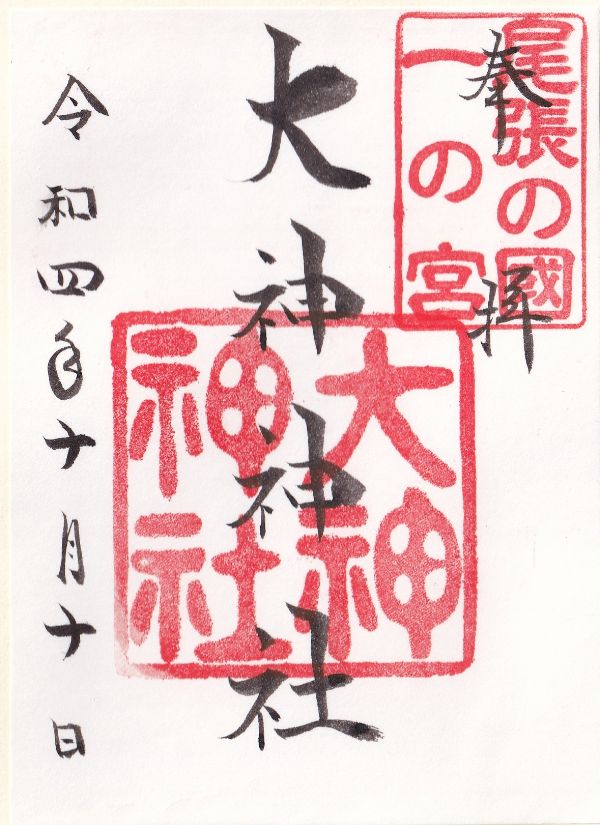 奉拝
尾張の國
一の宮
大神神社
大神
神社
令和四年十月十日